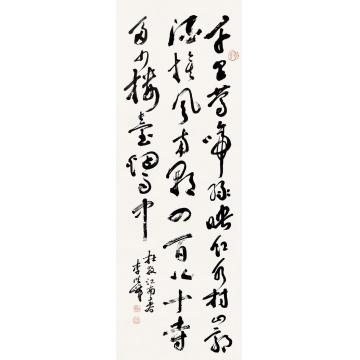 千里莺啼绿映红水村山郭
酒旗风南朝四百八十寺
多少楼臺烟雨中
杜牧江南春